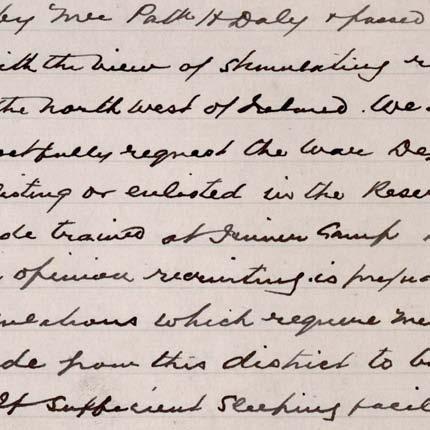 by Mr Patk H Daly & passed
ith the view of stimulating r
the north west of Ireland. We
ectfully request the War De
listing or enlisted in the Reser
de trained at Finner Camp
opinion recruiting is preju
ulations which require me
de from this district to b
If sufficient sleeping facil